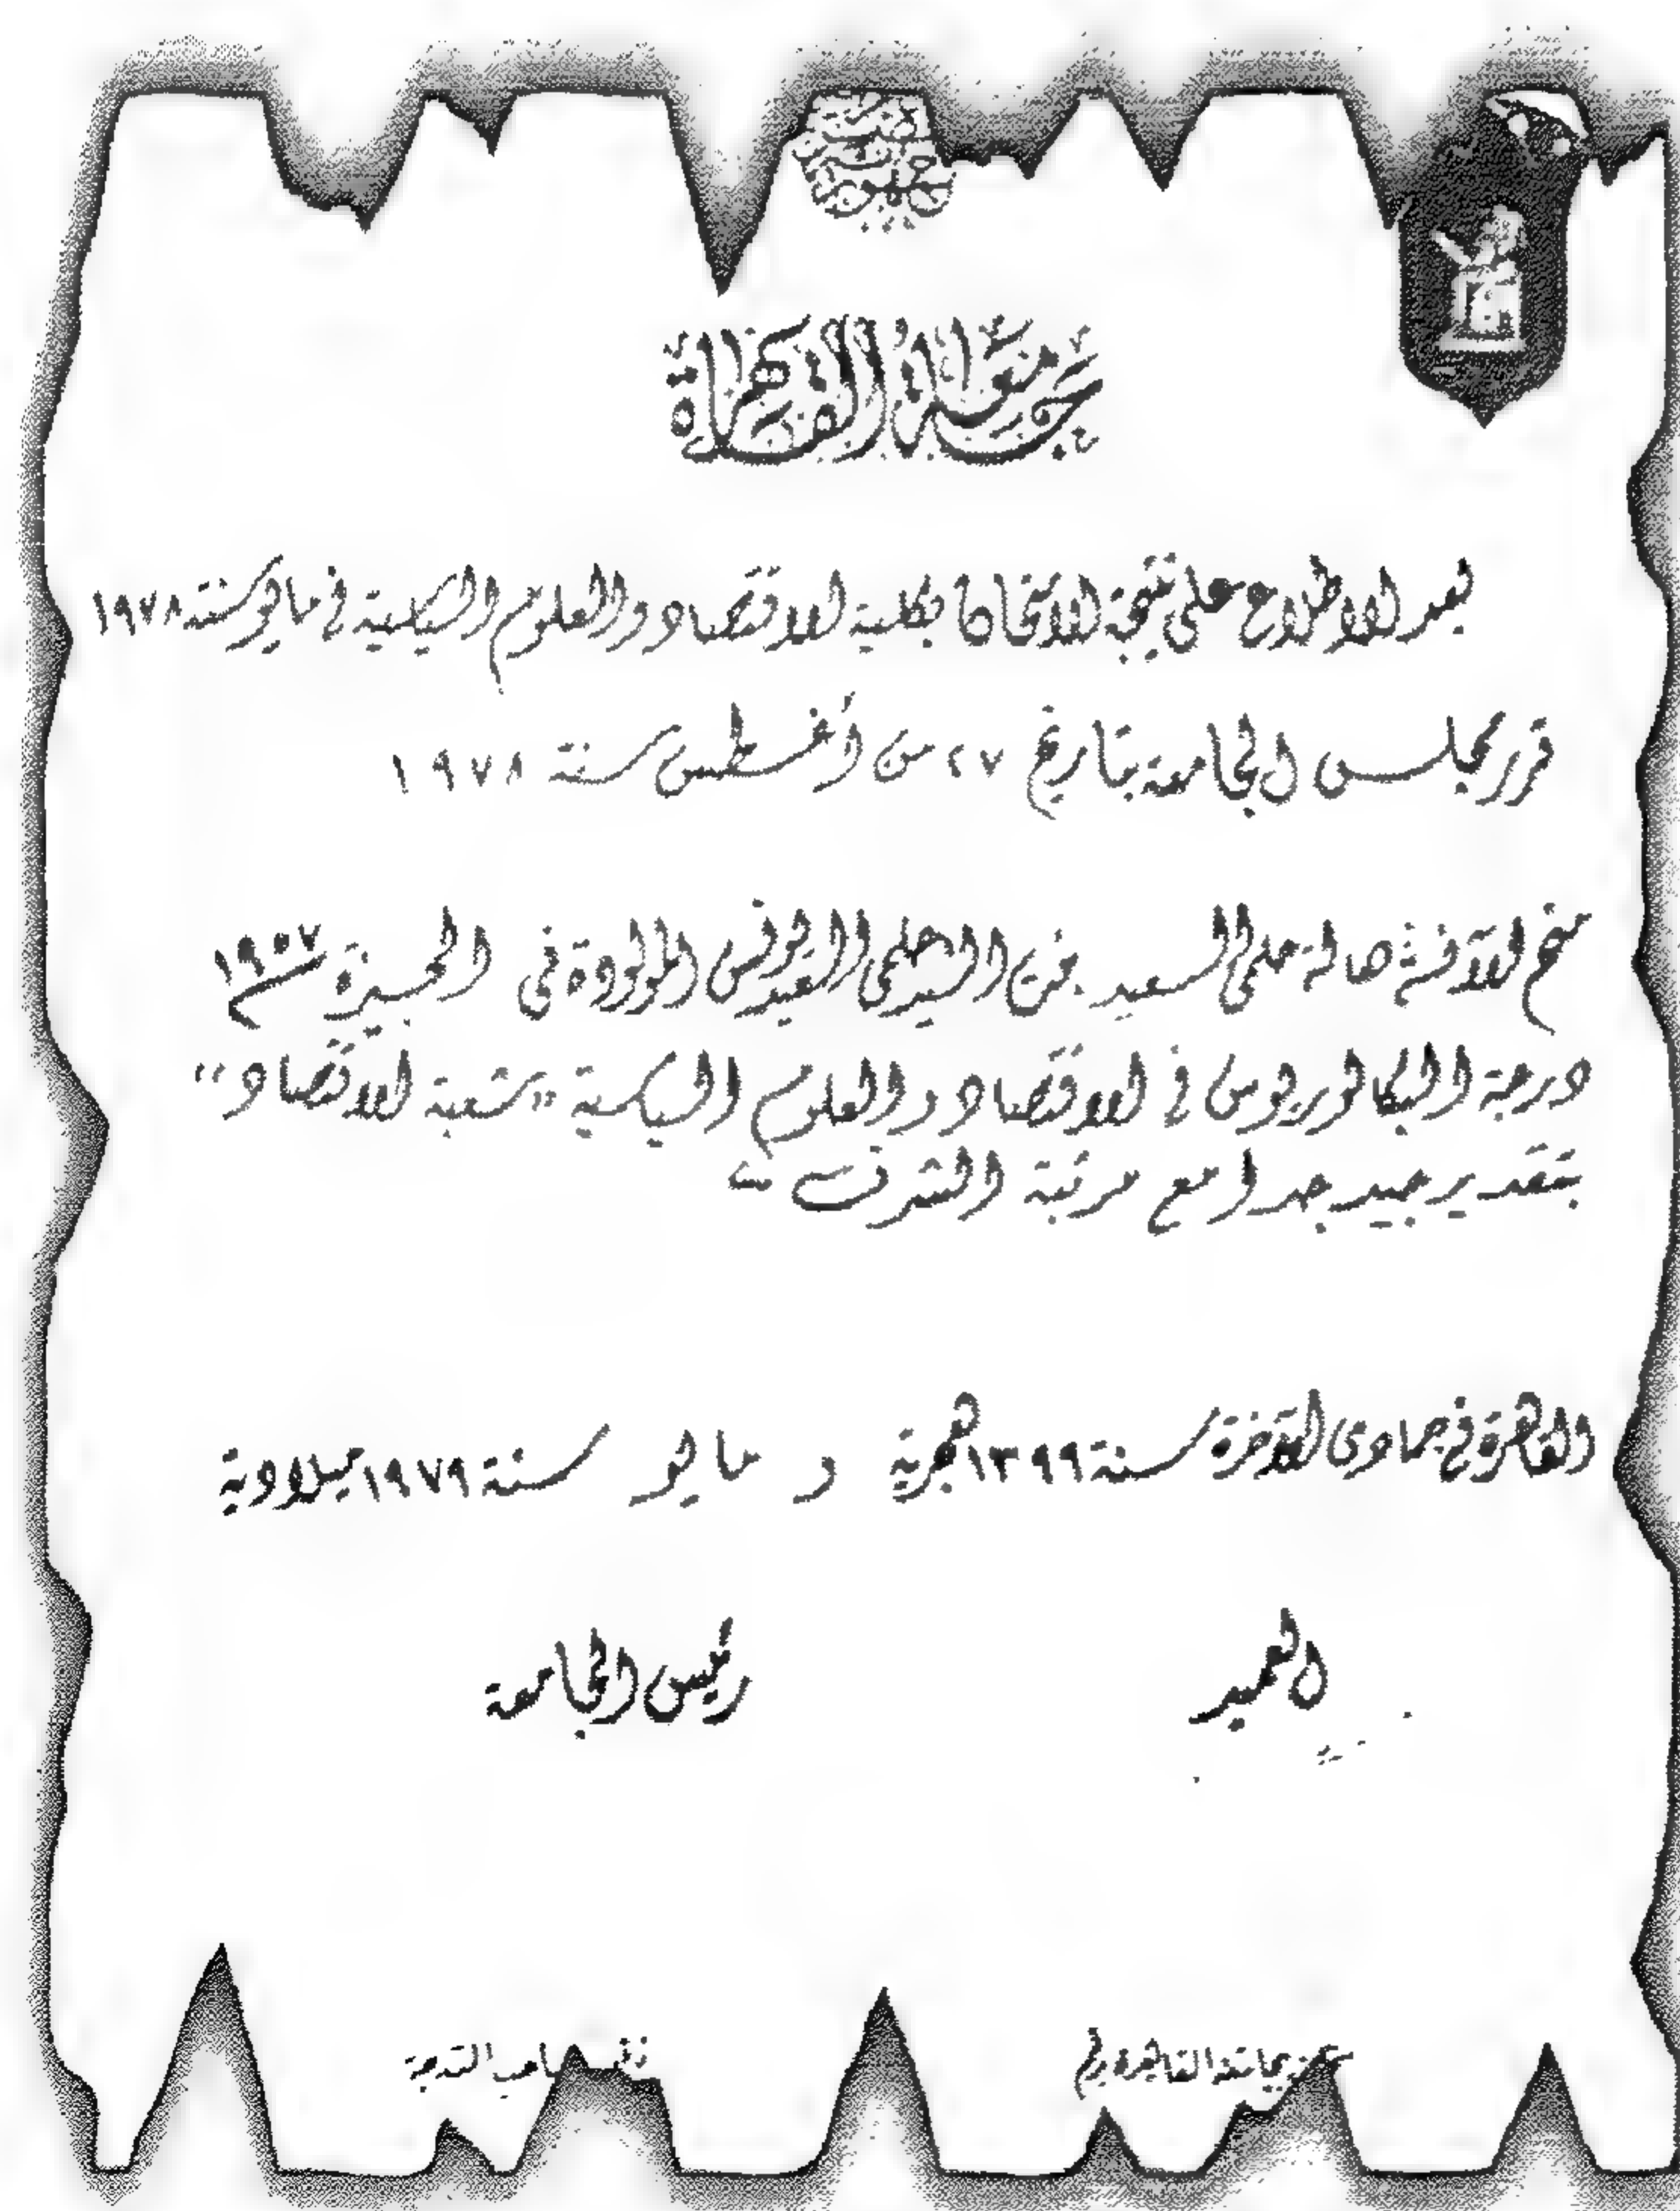 جمهورية مصر العربية
جامعة القاهرة
بعد الاطلاع على نتيجة الامتحان بكلية الاقتصاد والعلوم السياسية في مايو سنة ١٩٧٨
قرر مجلس الجامعة بتاريخ ٢٧ من أغسطس سنة ١٩٧٨
منح الآنسة هالة حلمى السعيد السيد حلمى السعيد يونس المولودة فى الجيزة سنة ١٩٥٧
درجة البكالوريوس في الاقتصاد والعلوم السياسية "شعبة الاقتصاد"
بتقدير جيد جدا مع مرتبة الشرف
القاهرة في جمادى الآخرة سنة ١٣٩٩ هجرية و مايو سنة ١٩٧٩ ميلادية
العميد رئيس الجامعة
بجامعة القاهرة برقم صاحب الدرجة